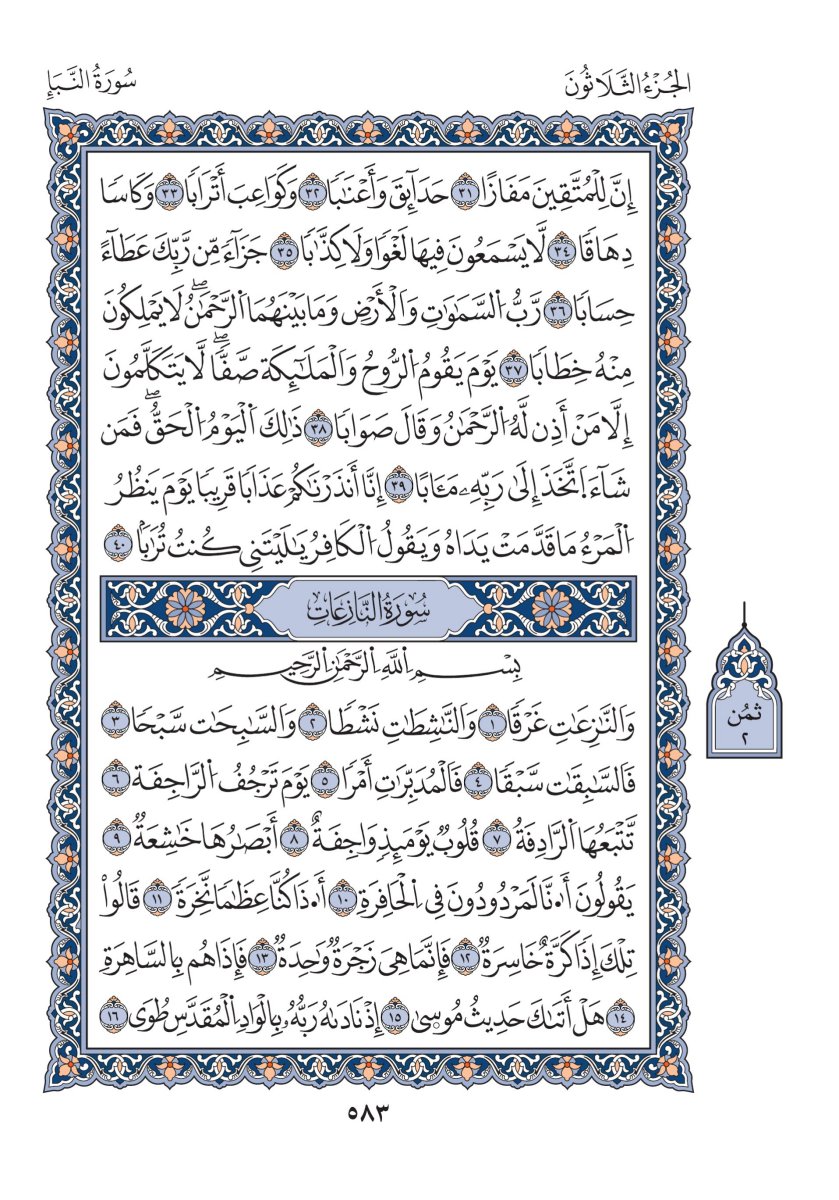 سُورَةُ النَّبَإِ
الجُزْءُ الثَّلَاثُونَ
إِنَّ لِلْمُتَّقِينَ مَفَازًا ٣١ حَدَآئِقَ وَأَعْنَٰبًا ٣٢ وَكَوَاعِبَ أَتْرَابًا ٣٣ وَكَأْسًا
دِهَاقًا ٣٤ لَّا يَسْمَعُونَ فِيهَا لَغْوًا وَلَا كِذَّٰبًا ٣٥ جَزَآءً مِّن رَّبِّكَ عَطَآءً
حِسَابًا ٣٦ رَّبُّ اُلسَّمَٰوَٰتِ وَاَلْأَرْضِ وَمَا بَيْنَهُمَا اَلرَّحْمَٰنُۖ لَا يَمْلِكُونَ
مِنْهُ خِطَابًا ٣٧ يَوْمَ يَقُومُ اُلرُّوحُ وَاَلْمَلَٰٓئِكَة صَّفًّاۖ لَّا يَتَكَلَّمُونَ
إِلَّا مَنْ أَذِن لَّهُ اُلرَّحْمَٰنُ وَقَالَ صَوَابًا ٣٨ ذَٰلِكَ اَلْيَوْمُ اُلْحَقُّۖ فَمَن
شَآءَ اَتَّخَذَ إِلَىٰ رَبِّهِۦ مَـَٔابًا ٣٩ إِنَّا أَنذَرْنَٰكُمْ عَذَابًا قَرِيبًا يَوْمَ يَنظُرُ
اُلْمَرْءُ مَا قَدَّمَتْ يَدَاهُ وَيَقُولُ اُلْكَافِرُ يَٰلَيْتَنِي كُنتُ تُرَٰبًا ٤٠
سُورَةُ النَّازِعَاتِ
بِسْمِ اِللَّهِ اِلرَّحْمَٰنِ اِلرَّحِيمِ
وَالنَّٰزِعَٰتِ غَرْقًا ١ وَالنَّٰشِطَٰتِ نَشْطًا ٢ وَالسَّٰبِحَٰت سَّبْحًا ٣
فَالسَّٰبِقَٰت سَّبْقًا ٤ فَالْمُدَبِّرَٰتِ أَمْرًا ٥ يَوْمَ تَرْجُفُ اُلرَّاجِفَة ٦
تَّتْبَعُهَا اَلرَّادِفَةُ ٧ قُلُوبٌ يَوْمَئِذٍ وَاجِفَةٌ ٨ أَبْصَٰرُهَا خَٰشِعَةٌ ٩
يَقُولُونَ أَ۟نَّا لَمَرْدُودُونَ فِي اِلْحَافِرَةِ ١٠ أَ۟ذَا كُنَّا عِظَٰمًا نَّخِرَةً ١١ قَالُواْ
تِلْكَ إِذًا كَرَّةٌ خَاسِرَةٌ ١٢ فَإِنَّمَا هِيَ زَجْرَةٌ وَٰحِدَةٌ ١٣ فَإِذَا هُم بِالسَّاهِرَةِ
١٤ هَلْ أَتَىٰكَ حَدِيثُ مُوسِىٰ ١٥ إِذْ نَادَىٰهُ رَبُّهُۥ بِالْوَادِ اِلْمُقَدَّسِ طُوَى ١٦
ثُمُن
٢
٥٨٣